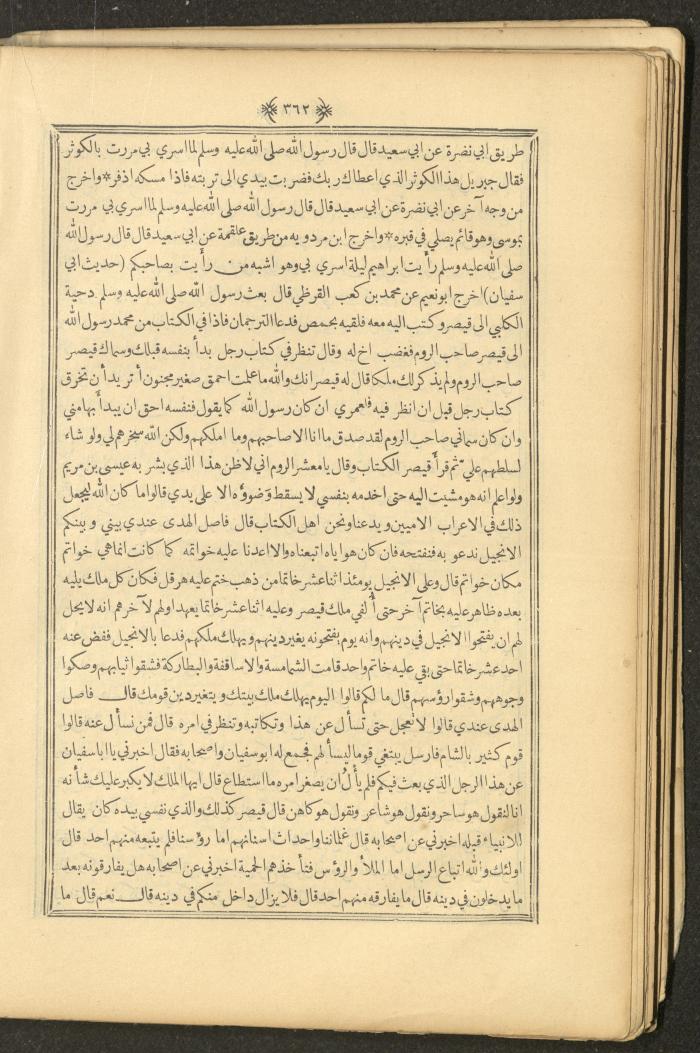 ٣٦٢
طريق ابي نضرة عن ابي سعيد قال قال رسول الله صلى الله عليه وسلم لما اسري بي مررت بالكوثر
فقال جبريل هذا الكوثر الذي اعطاك ربك فضربت بيدي الى تربته فاذا مسكه اذفر * واخرج
من وجه آخر عن ابي نضرة عن ابي سعيد قال قال رسول الله صلى الله عليه وسلم لما اسري بي مررت
بموسى وهو قائم يصلي في قبره * واخرج ابن مردويه من طريق علقمة عن ابي سعيد قال قال رسول الله
صلى الله عليه وسلم رأيت ابراهيم ليلة اسري بي وهو اشبه من رأيت بصاحبكم (حديث ابي
سفيان) اخرج ابو نعيم عن محمد بن كعب القرظي قال بعث رسول الله صلى الله عليه وسلم دحية
الكلبي الى قيصر وكتب اليه معه فلقيه بحمص فدعا الترجمان فاذا في الكتاب من محمد رسول الله
الى قيصر صاحب الروم فغضب اخ له وقال تنظر في كتاب رجل بدأ بنفسه قبلك وسماك قيصر
صاحب الروم ولم يذكر لك ملكا قال له قيصر انك والله ما علمت احمق صغير مجنون أتريد أن تخرق
كتاب رجل قبل ان انظر فيه فلعمري ان كان رسول الله كما يقول فنفسه احق ان يبدأ بها مني
وان كان سماني صاحب الروم لقد صدق ما انا الا صاحبهم وما املكهم ولكن الله سخرهم لي ولو شاء
لسلطهم علي ثم قرأ قيصر الكتاب وقال يا معشر الروم اني لاظن هذا الذي بشر به عيسى بن مريم
ولو اعلم انه هو مشيت اليه حتى اخدمه بنفسي لا يسقط وضوؤه الا على يدي قالوا ما كان الله ليجعل
ذلك في الاعراب الاميين ويدعنا ونحن اهل الكتاب قال فاصل الهدى عندي بيني وبينكم
الانجيل ندعو به فنفتحه فان كان هو اياه اتبعناه والا اعدنا عليه خواتمه كما كانت انما هي خواتم
مكان خواتم قال وعلى الانجيل يومئذ اثنا عشر خاتما من ذهب ختم عليه هرقل فكان كل ملك يليه
بعده ظاهر عليه بخاتم آخر حتى ألفي ملك قيصر وعليه اثنا عشر خاتما يعهد اولهم لآخرهم انه لا يحل
لهم ان يفتحوا الانجيل في دينهم وانه يوم يفتحونه يغير دينهم ويهلك ملكهم فدعا بالانجيل ففض عنه
احد عشر خاتما حتى بقي عليه خاتم واحد قامت الشمامسة والاساقفة والبطاركة فشقوا ثيابهم وصكوا
وجوههم وشقوا رؤسهم قال ما لكم قالوا اليوم يهلك ملك بيتك ويتغير دين قومك قال فاصل
الهدى عندي قالوا لا تعجل حتى تسأل عن هذا وتكاتبه وتنظر في امره قال فمن نسأل عنه قالوا
قوم كثير بالشام فارسل يبتغي قوما ليسألهم فجمع له ابو سفيان واصحابه فقال اخبرني يا ابا سفيان
عن هذا الرجل الذي بعث فيكم فلم يأل ان يصغر امره ما استطاع قال ايها الملك لا يكبر عليك شأنه
انا لنقول هو ساحر ونقول هو شاعر ونقول هو كاهن قال قيصر كذلك والذي نفسي بيده كان يقال
للانبياء قبله اخبرني عن اصحابه قال غلماننا واحداث اسنانهم اما رؤسنا فلم يتبعه منهم احد قال
اولئك والله اتباع الرسل اما الملأ والرؤس فتأخذهم الحمية اخبرني عن اصحابه هل يفارقونه بعد
ما يدخلون في دينه قال ما يفارقه منهم احد قال فلا يزال داخل منكم في دينه قال نعم قال ما